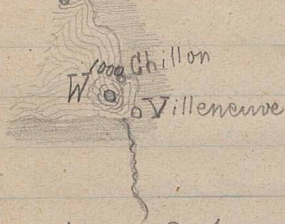 1000 Chillon
W Villeneuve